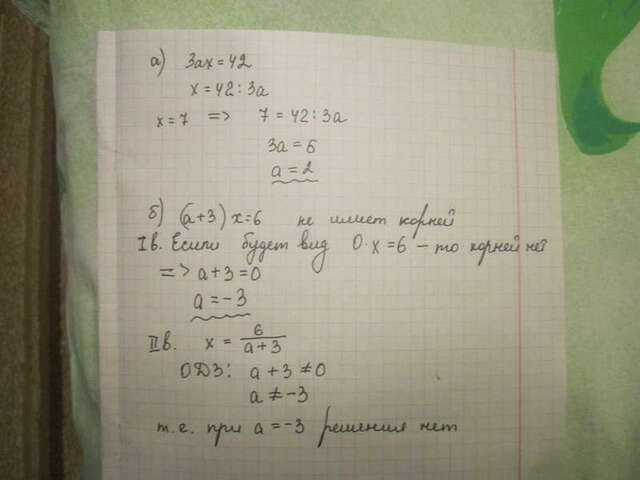 а) 3ax = 42
x = 42 : 3a
x = 7 => 7 = 42 : 3a
3a = 6
a = 2
б) (a+3) x = 6 не имеет корней
I в. Если будет вид 0·x = 6 – то корней нет
=> a + 3 = 0
a = -3
II в. x = 6/(a+3)
ОДЗ: a + 3 ≠ 0
a ≠ -3
т.е. при a = -3 решения нет